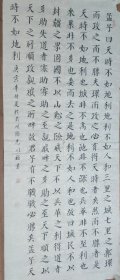 孟子曰天時不如地利地利不如人和三里之城七里之郭環
而攻之而不勝夫環而攻之必有得天時者矣然而不勝者是
天時不如地利也城非不高也池非不深也兵革非不堅利也
米粟非不多也委而去之是地利不如人和也故曰域民不以
封疆之界固國不以山谿之險威天下不以兵革之利得道者
多助失道者寡助寡助之至親戚畔之多助之至天下順之以
天下之所順攻親戚之所畔故君子有不戰戰必勝矣孟子天
時不如地利